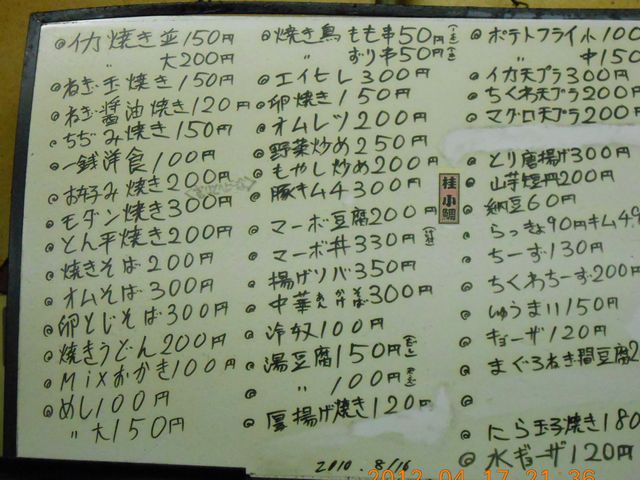 ◎イカ焼き並150円
〃 大200円
◎ねぎ玉焼き150円
◎ねぎ醤油焼き120円
◎ちぢみ焼き150円
◎一銭洋食100円
◎お好み焼き200円
◎モダン焼き300円
◎とん平焼き200円
◎焼きそば200円
◎オムそば300円
◎卵とじそば300円
◎焼きうどん200円
◎Mixおかき100円
◎めし100円
〃 大150円
◎焼き鳥もも串50円
〃 ずり串50円
◎エイヒレ300円
◎卵焼き150円
◎オムレツ200円
◎野菜炒め250円
◎もやし炒め200円
◎豚キムチ300円
◎マーボ豆腐200円
◎マーボ丼330円
◎揚げソバ350円
◎中華あんかけそば300円
◎冷奴100円
◎湯豆腐150円
◎〃 100円
◎厚揚げ焼き120円
桂小鯛
◎ポテトフライ小100
〃 中150
◎イカ天プラ300円
◎ちくわ天プラ200
◎マグロ天プラ200
◎とり唐揚げ300円
◎山芋短冊200円
◎納豆60円
◎らっきょ90円キムチ
◎ちーず130円
◎ちくわちーず200
◎しゅうまい150円
◎ギョーザ120円
◎まぐろねぎ間豆腐2
◎にら玉子焼き180
◎水ギョーザ120円
2010.8/16
2012.04.17 21:36